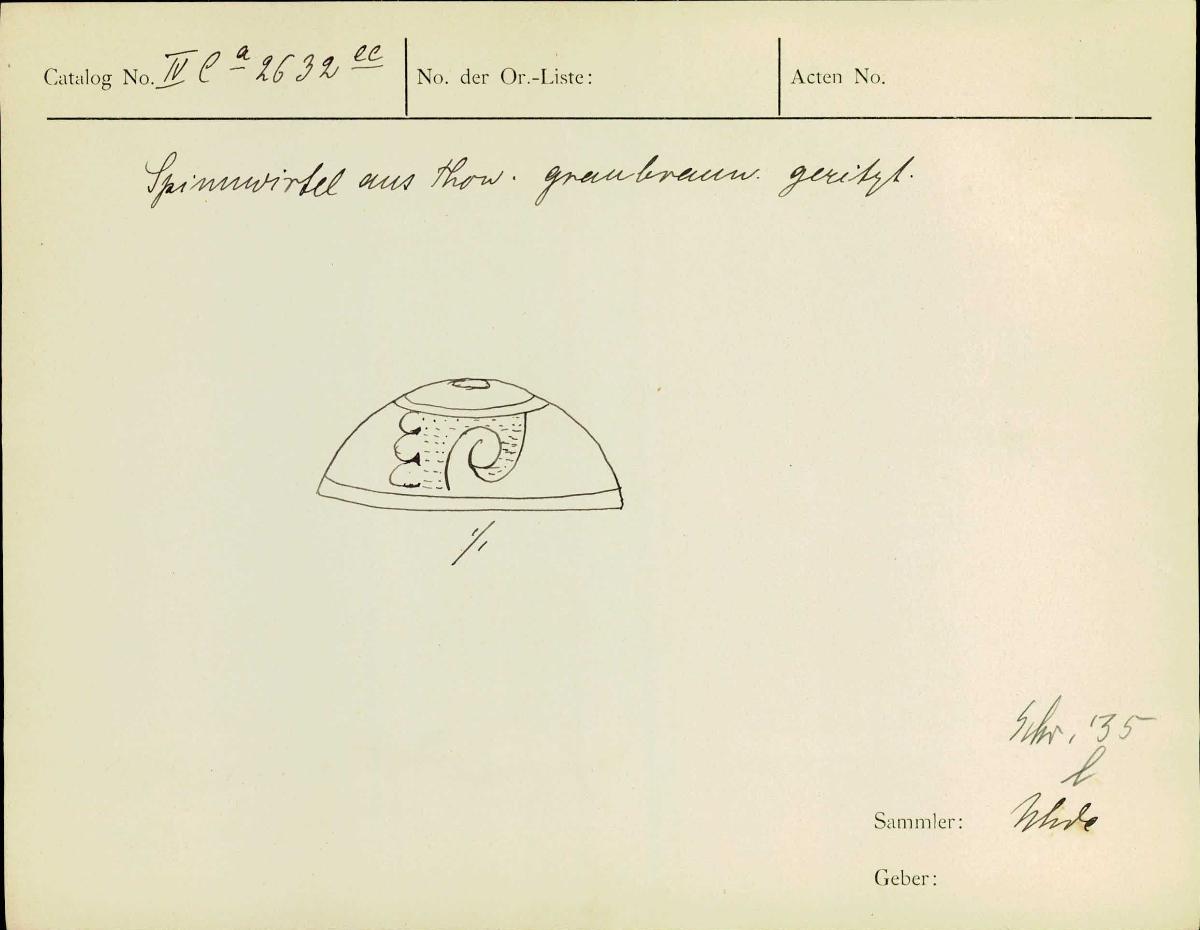 Catalog No. IV Ca 2632 ee
No. der Or.-Liste:
Acten No.
Spinnwirtel aus Thon. graubraun. geritzt.
1/1
Schr. '35
l
Sammler: Uhde
Geber: